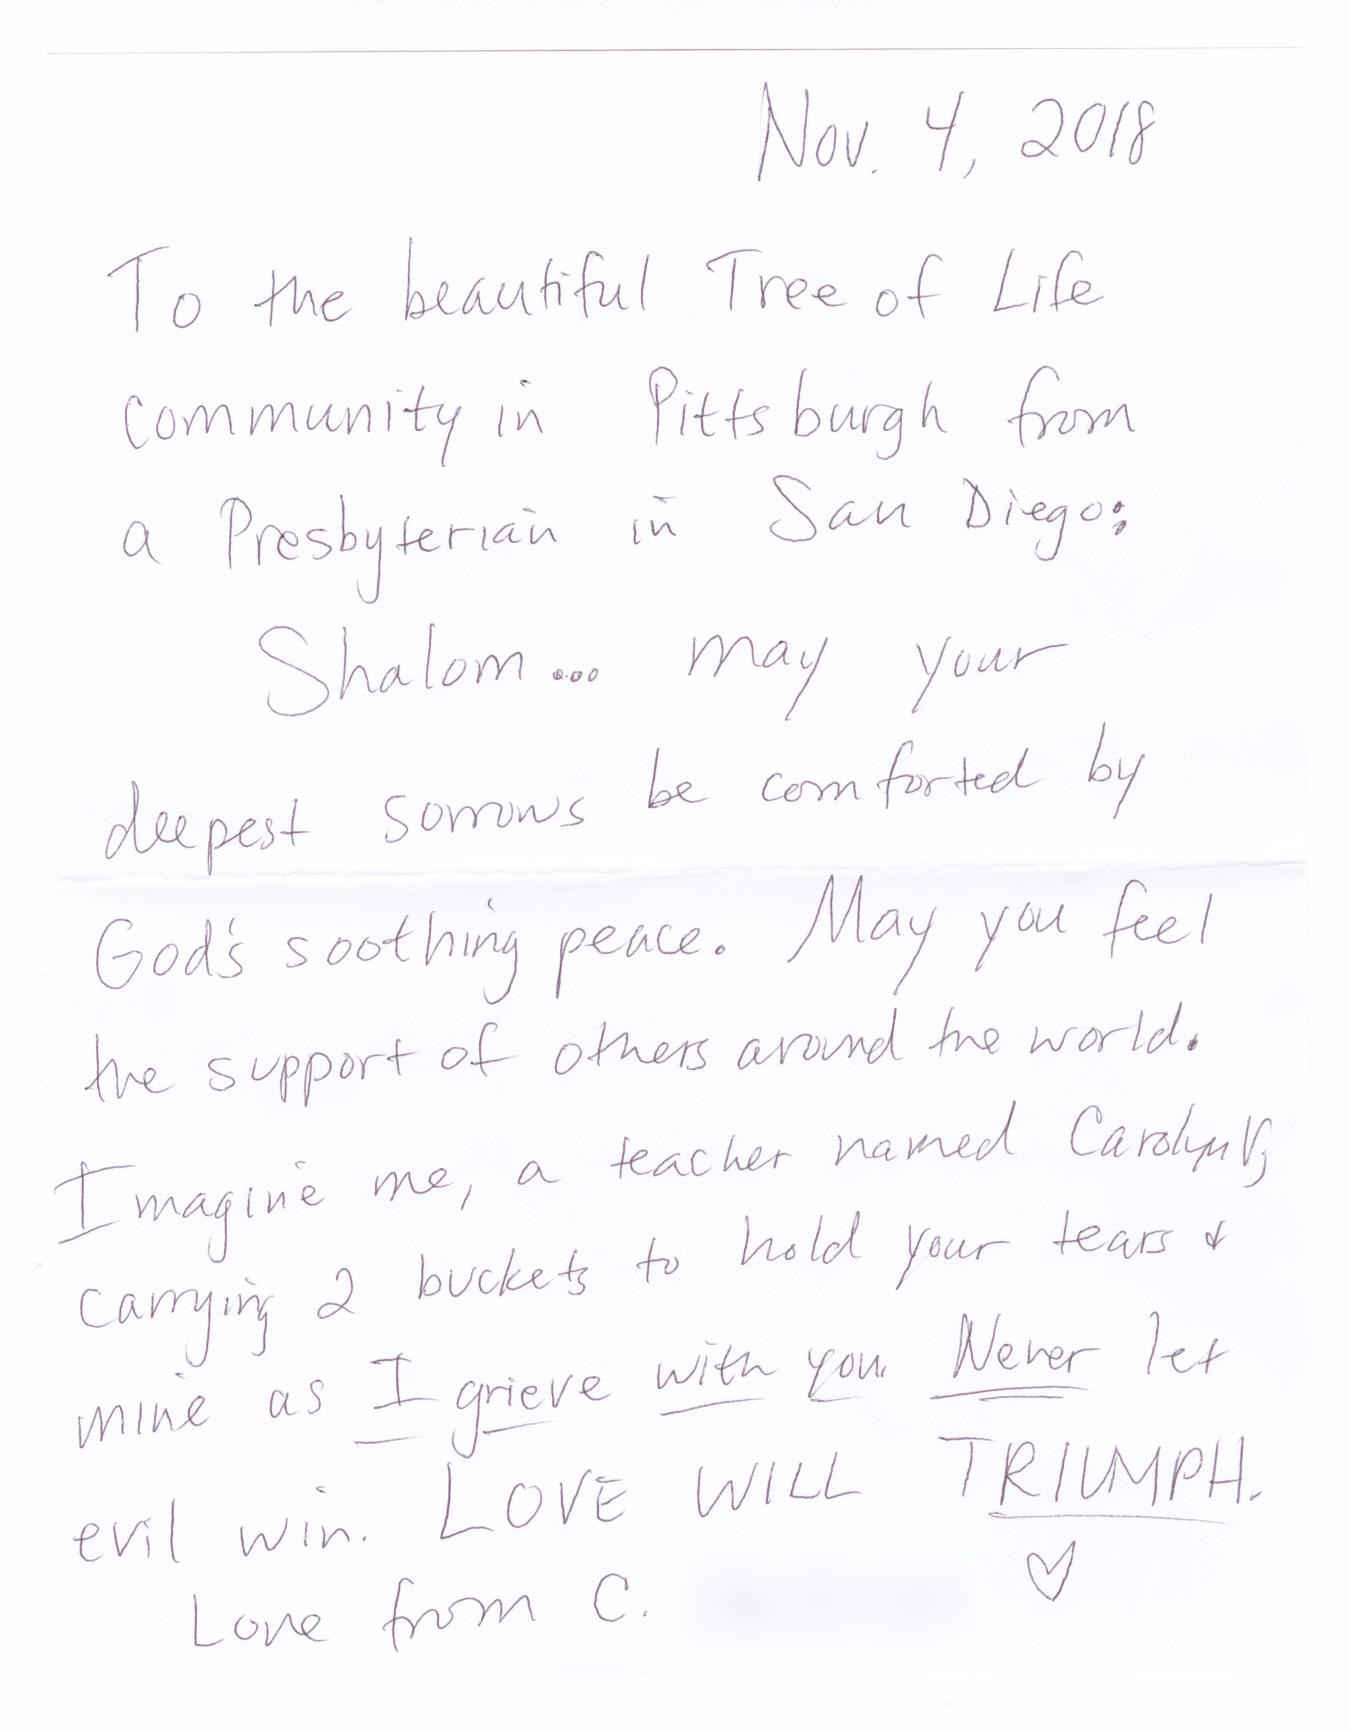 Nov. 4, 2018
To the beautiful Tree of Life
community in Pittsburgh from
a Presbyterian in San Diego:
Shalom... may your
deepest sorrows be comforted by
God's soothing peace. May you feel
the support of others around the world.
Imagine me, a teacher named Carolyn V,
carrying 2 buckets to hold your tears &
mine as I grieve with you. Never let
evil win. LOVE WILL TRIUMPH.
Love from C. ♡